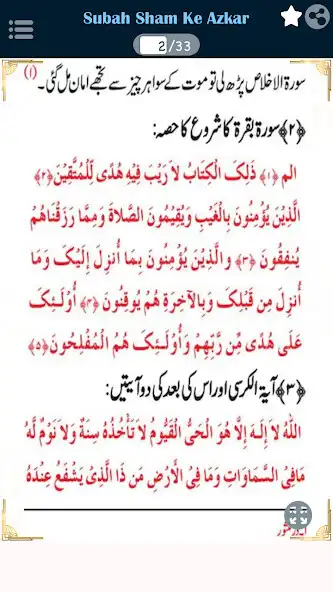 Subah Sham Ke Azkar
2/33
سورۃ الاخلاص پڑھ لی تو موت کے سوا ہر چیز سے تجھے امان مل گئی۔ (۱)
﴿۲﴾ سورۃ بقرۃ کا شروع کا حصہ:
الم ﴿۱﴾ ذَلِکَ الْکِتَابُ لاَ رَیْبَ فِیْهِ هُدًی لِّلْمُتَّقِیْنَ ﴿۲﴾
الَّذِیْنَ یُؤْمِنُونَ بِالْغَیْبِ وَیُقِیْمُونَ الصَّلاةَ وَمِمَّا رَزَقْنَاهُمْ
یُنفِقُونَ ﴿۳﴾ والَّذِیْنَ یُؤْمِنُونَ بِمَا أُنزِلَ إِلَیْکَ وَمَا
أُنزِلَ مِن قَبْلِکَ وَبِالآخِرَةِ هُمْ یُوقِنُونَ ﴿۴﴾ أُوْلَـئِکَ
عَلَی هُدًی مِّن رَّبِّهِمْ وَأُوْلَـئِکَ هُمُ الْمُفْلِحُونَ ﴿۵﴾
﴿۳﴾ آیۃ الکرسی اور اس کی بعد کی دو آیتیں:
اللّٰهُ لاَ إِلَـهَ إِلَّا هُوَ الْحَیُّ الْقَیُّومُ لاَ تَأْخُذُهُ سِنَةٌ وَلاَ نَوْمٌ لَّهُ
مَا فِیْ السَّمَاوَاتِ وَمَا فِیْ الْأَرْضِ مَن ذَا الَّذِیْ یَشْفَعُ عِنْدَهُ